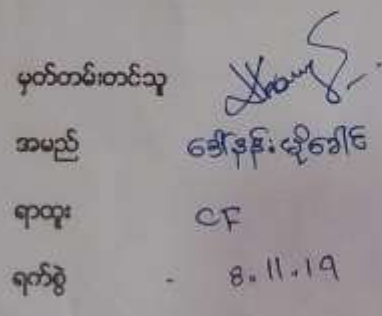 မှတ်တမ်းတင်သူ
အမည် ဒေါ်နန်း
ရာထူး CF
ရက်စွဲ - 8.11.19